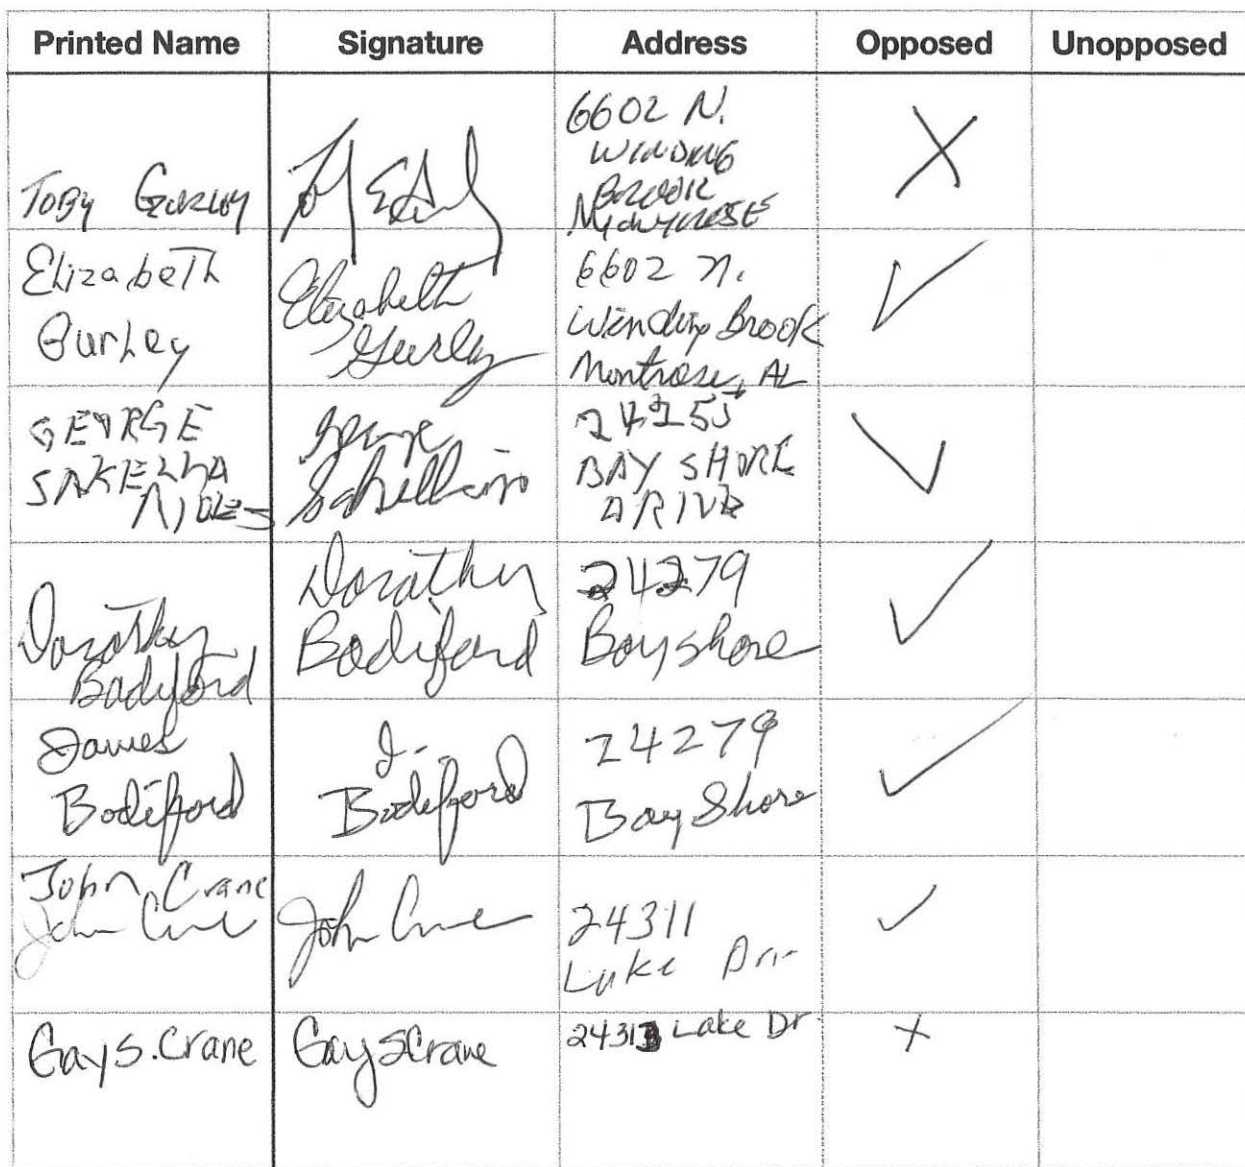 Printed Name Signature Address Opposed Unopposed
6602 N.
WINDING
BROOK
MONTROSE
TOBY GURLEY
X
Elizabeth
Gurley
Elizabeth
Gurley
6602 N.
Winding Brook
Montrose, AL
✓
GEORGE
SAKELLA
RIDES
George
24255
BAY SHORE
DRIVE
✓
Dorothy
Bodiford
Dorothy
Bodiford
24279
Bayshore
✓
James
Bodiford
J.
Bodiford
24279
Bay Shore
✓
John Crane
John Crane
John Crane
24311
Lake Dr
✓
Gay S. Crane
Gay S Crane
24313 Lake Dr
X